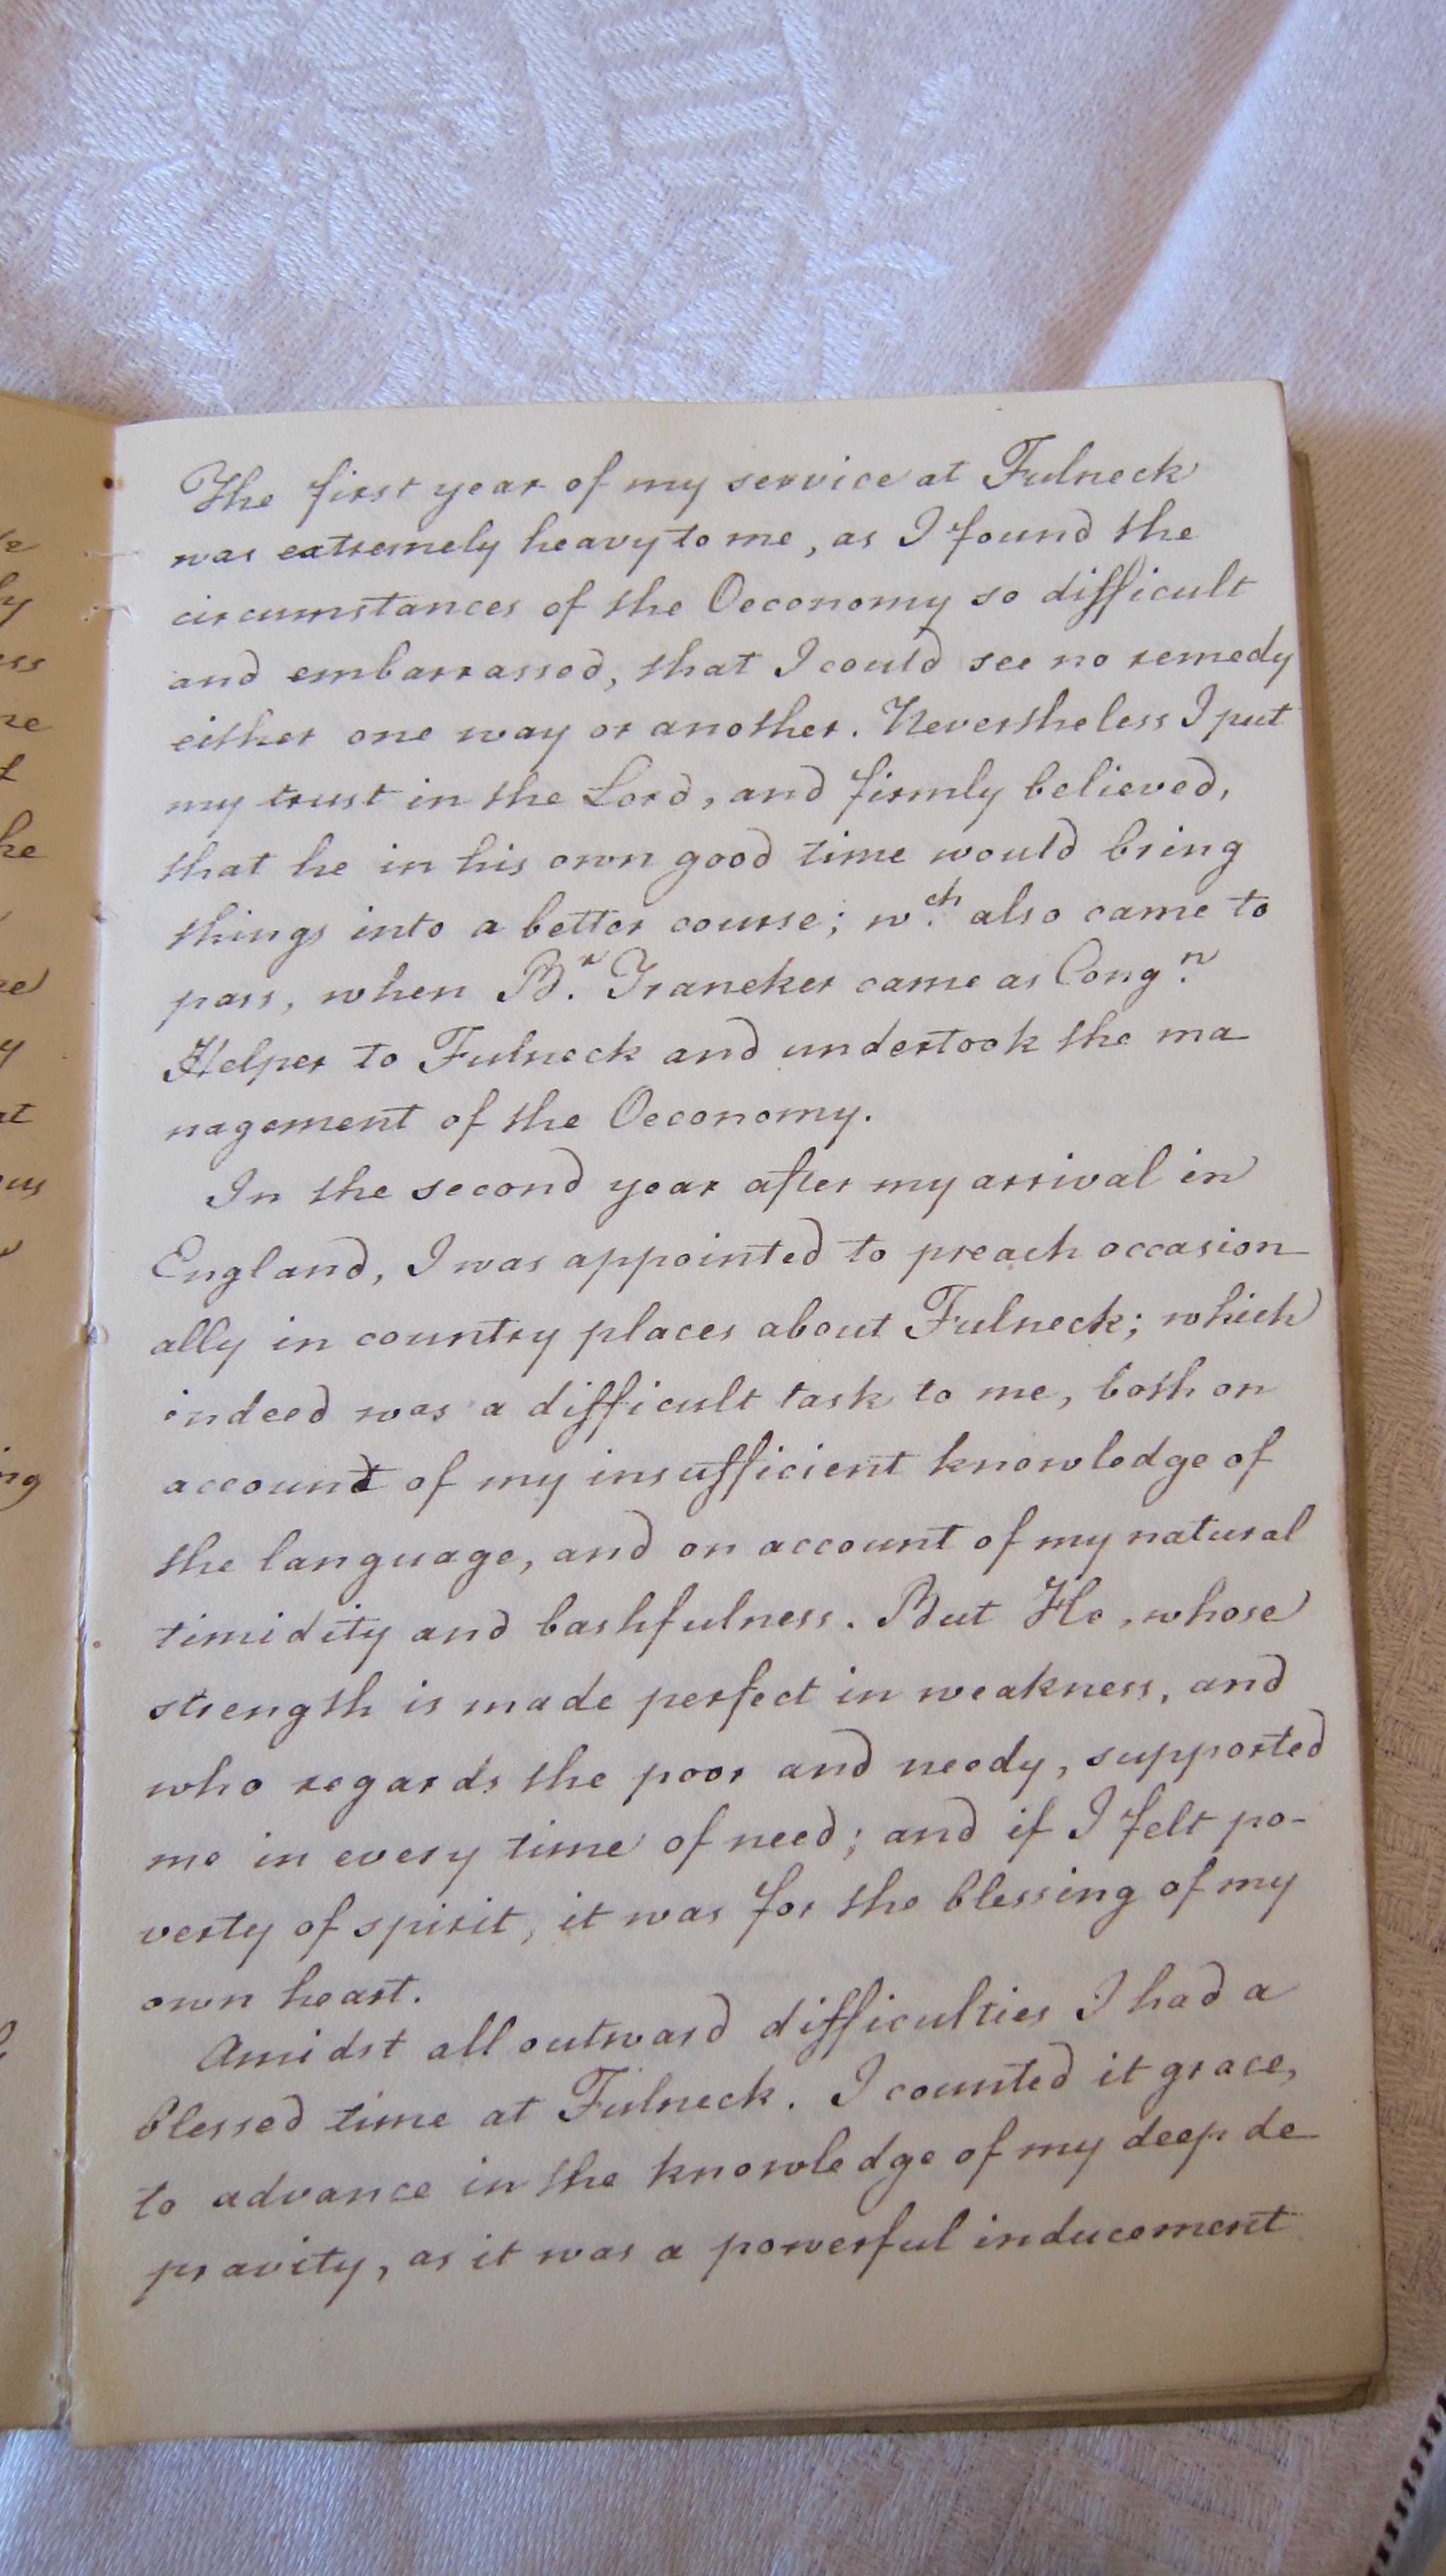 The first year of my service at Fulneck
was extremely heavy to me, as I found the
circumstances of the Oeconomy so difficult
and embarrassed, that I could see no remedy
either one way or another. Nevertheless I put
my trust in the Lord, and firmly believed,
that he in his own good time would bring
things into a better course; wch. also came to
pass, when Br. Traneker came as Congn.
Helper to Fulneck and undertook the ma-
nagement of the Oeconomy.
In the second year after my arrival in
England, I was appointed to preach occasion-
ally in country places about Fulneck; which
indeed was a difficult task to me, both on
account of my insufficient knowledge of
the language, and on account of my natural
timidity and bashfulness. But He, whose
strength is made perfect in weakness, and
who regards the poor and needy, supported
me in every time of need; and if I felt po-
verty of spirit, it was for the blessing of my
own heart.
Amidst all outward difficulties I had a
blessed time at Fulneck. I counted it grace,
to advance in the knowledge of my deep de-
pravity, as it was a powerful inducement